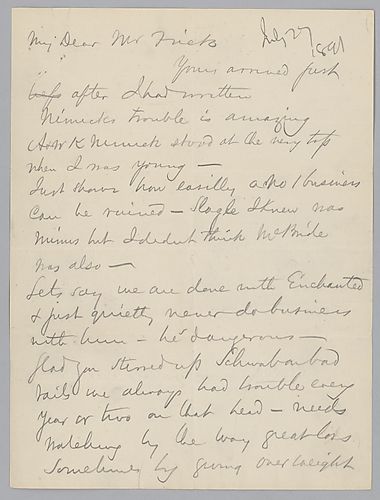 July 27
1891
My Dear Mr Frick
" "
Yours arrived just
after I had written
Nimicks trouble is amazing
A & W K Nimick stood at the very top
when I was young —
Just shows how easilly a No 1 business
Can be ruined — Slagle I knew was
minus but I didnt think McBride
was also —
Lets say we are done with Enchanted
& just quietly never do business
with him — he's dangerous —
Glad you stirred up Schwab on bad
rails we always had trouble every
year or two on that head — needs
watching by the way great loss
Sometimes by giving overweight